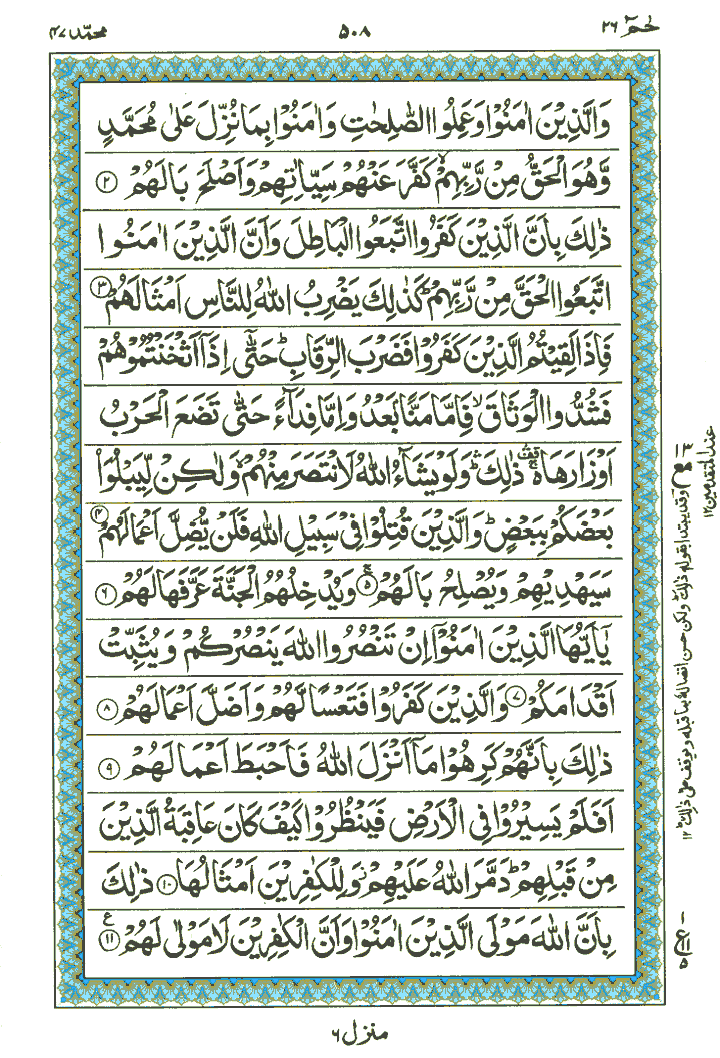 حٰمٓ ٢٦
٥٠٨
محمّد ٤٧
وَالَّذِيْنَ اٰمَنُوْا وَعَمِلُوا الصّٰلِحٰتِ وَاٰمَنُوْا بِمَا نُزِّلَ عَلٰى مُحَمَّدٍ
وَّهُوَ الْحَقُّ مِنْ رَّبِّهِمْ ۙ كَفَّرَ عَنْهُمْ سَيِّاٰتِهِمْ وَاَصْلَحَ بَالَهُمْ ٢
ذٰلِكَ بِاَنَّ الَّذِيْنَ كَفَرُوا اتَّبَعُوا الْبَاطِلَ وَاَنَّ الَّذِيْنَ اٰمَنُوا
اتَّبَعُوا الْحَقَّ مِنْ رَّبِّهِمْ ؕ كَذٰلِكَ يَضْرِبُ اللّٰهُ لِلنَّاسِ اَمْثَالَهُمْ ٣
فَاِذَا لَقِيْتُمُ الَّذِيْنَ كَفَرُوْا فَضَرْبَ الرِّقَابِ ؕ حَتّٰۤى اِذَاۤ اَثْخَنْتُمُوْهُمْ
فَشُدُّوا الْوَثَاقَ ۙ فَاِمَّا مَنًّۢا بَعْدُ وَاِمَّا فِدَآءً حَتّٰى تَضَعَ الْحَرْبُ
اَوْزَارَهَا ۛ۫ ذٰلِكَ ؕۛ وَلَوْ يَشَآءُ اللّٰهُ لَانْتَصَرَ مِنْهُمْ ۙ وَلٰكِنْ لِّيَبْلُوَا۟
بَعْضَكُمْ بِبَعْضٍ ؕ وَالَّذِيْنَ قُتِلُوْا فِيْ سَبِيْلِ اللّٰهِ فَلَنْ يُّضِلَّ اَعْمَالَهُمْ ٤
سَيَهْدِيْهِمْ وَيُصْلِحُ بَالَهُمْ ٥ وَيُدْخِلُهُمُ الْجَنَّةَ عَرَّفَهَا لَهُمْ ٦
يٰۤاَيُّهَا الَّذِيْنَ اٰمَنُوْۤا اِنْ تَنْصُرُوا اللّٰهَ يَنْصُرْكُمْ وَيُثَبِّتْ
اَقْدَامَكُمْ ٧ وَالَّذِيْنَ كَفَرُوْا فَتَعْسًا لَّهُمْ وَاَضَلَّ اَعْمَالَهُمْ ٨
ذٰلِكَ بِاَنَّهُمْ كَرِهُوْا مَاۤ اَنْزَلَ اللّٰهُ فَاَحْبَطَ اَعْمَالَهُمْ ٩
اَفَلَمْ يَسِيْرُوْا فِي الْاَرْضِ فَيَنْظُرُوْا كَيْفَ كَانَ عَاقِبَةُ الَّذِيْنَ
مِنْ قَبْلِهِمْ ؕ دَمَّرَ اللّٰهُ عَلَيْهِمْ ۫ وَلِلْكٰفِرِيْنَ اَمْثَالُهَا ١٠ ذٰلِكَ
بِاَنَّ اللّٰهَ مَوْلَى الَّذِيْنَ اٰمَنُوْا وَاَنَّ الْكٰفِرِيْنَ لَا مَوْلٰى لَهُمْ ١١
عند المتقدمين ١٢
وقد يبتدأ بقوله ذلك ولكن حسن اتصاله بما قبله ويوقف على ذلك ١٢
منزل ٦